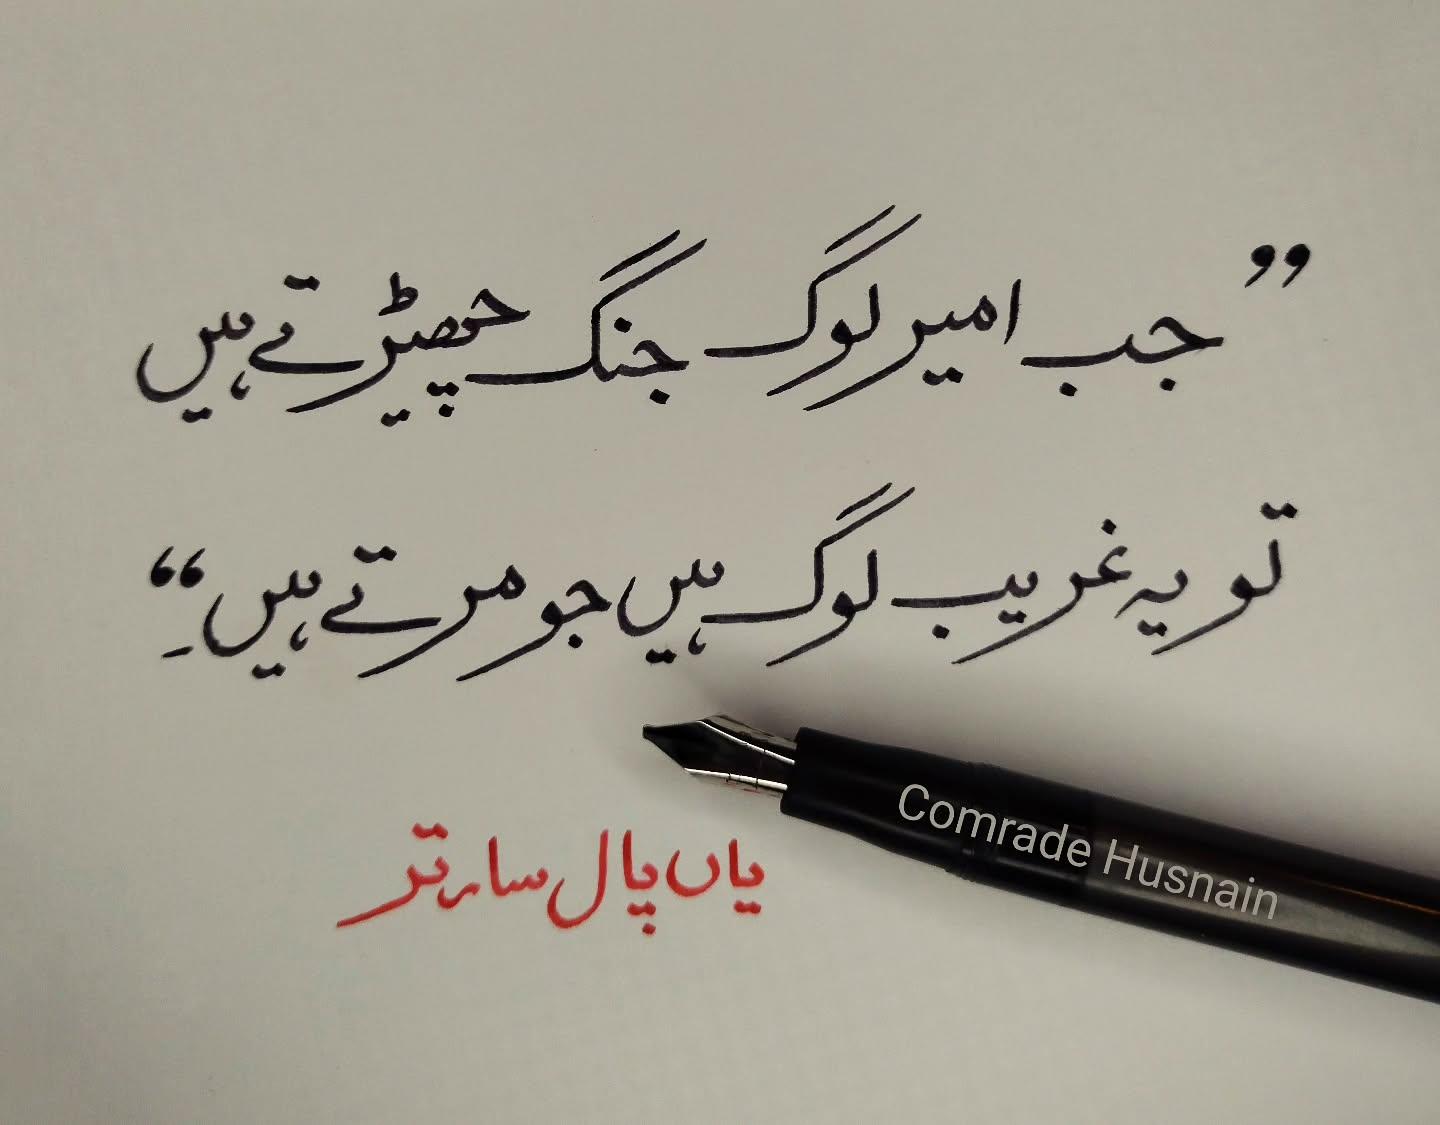 ”جب امیر لوگ جنگ چھیڑتے ہیں
تو یہ غریب لوگ ہیں جو مرتے ہیں۔“
یاں پال سارتر
Comrade Husnain